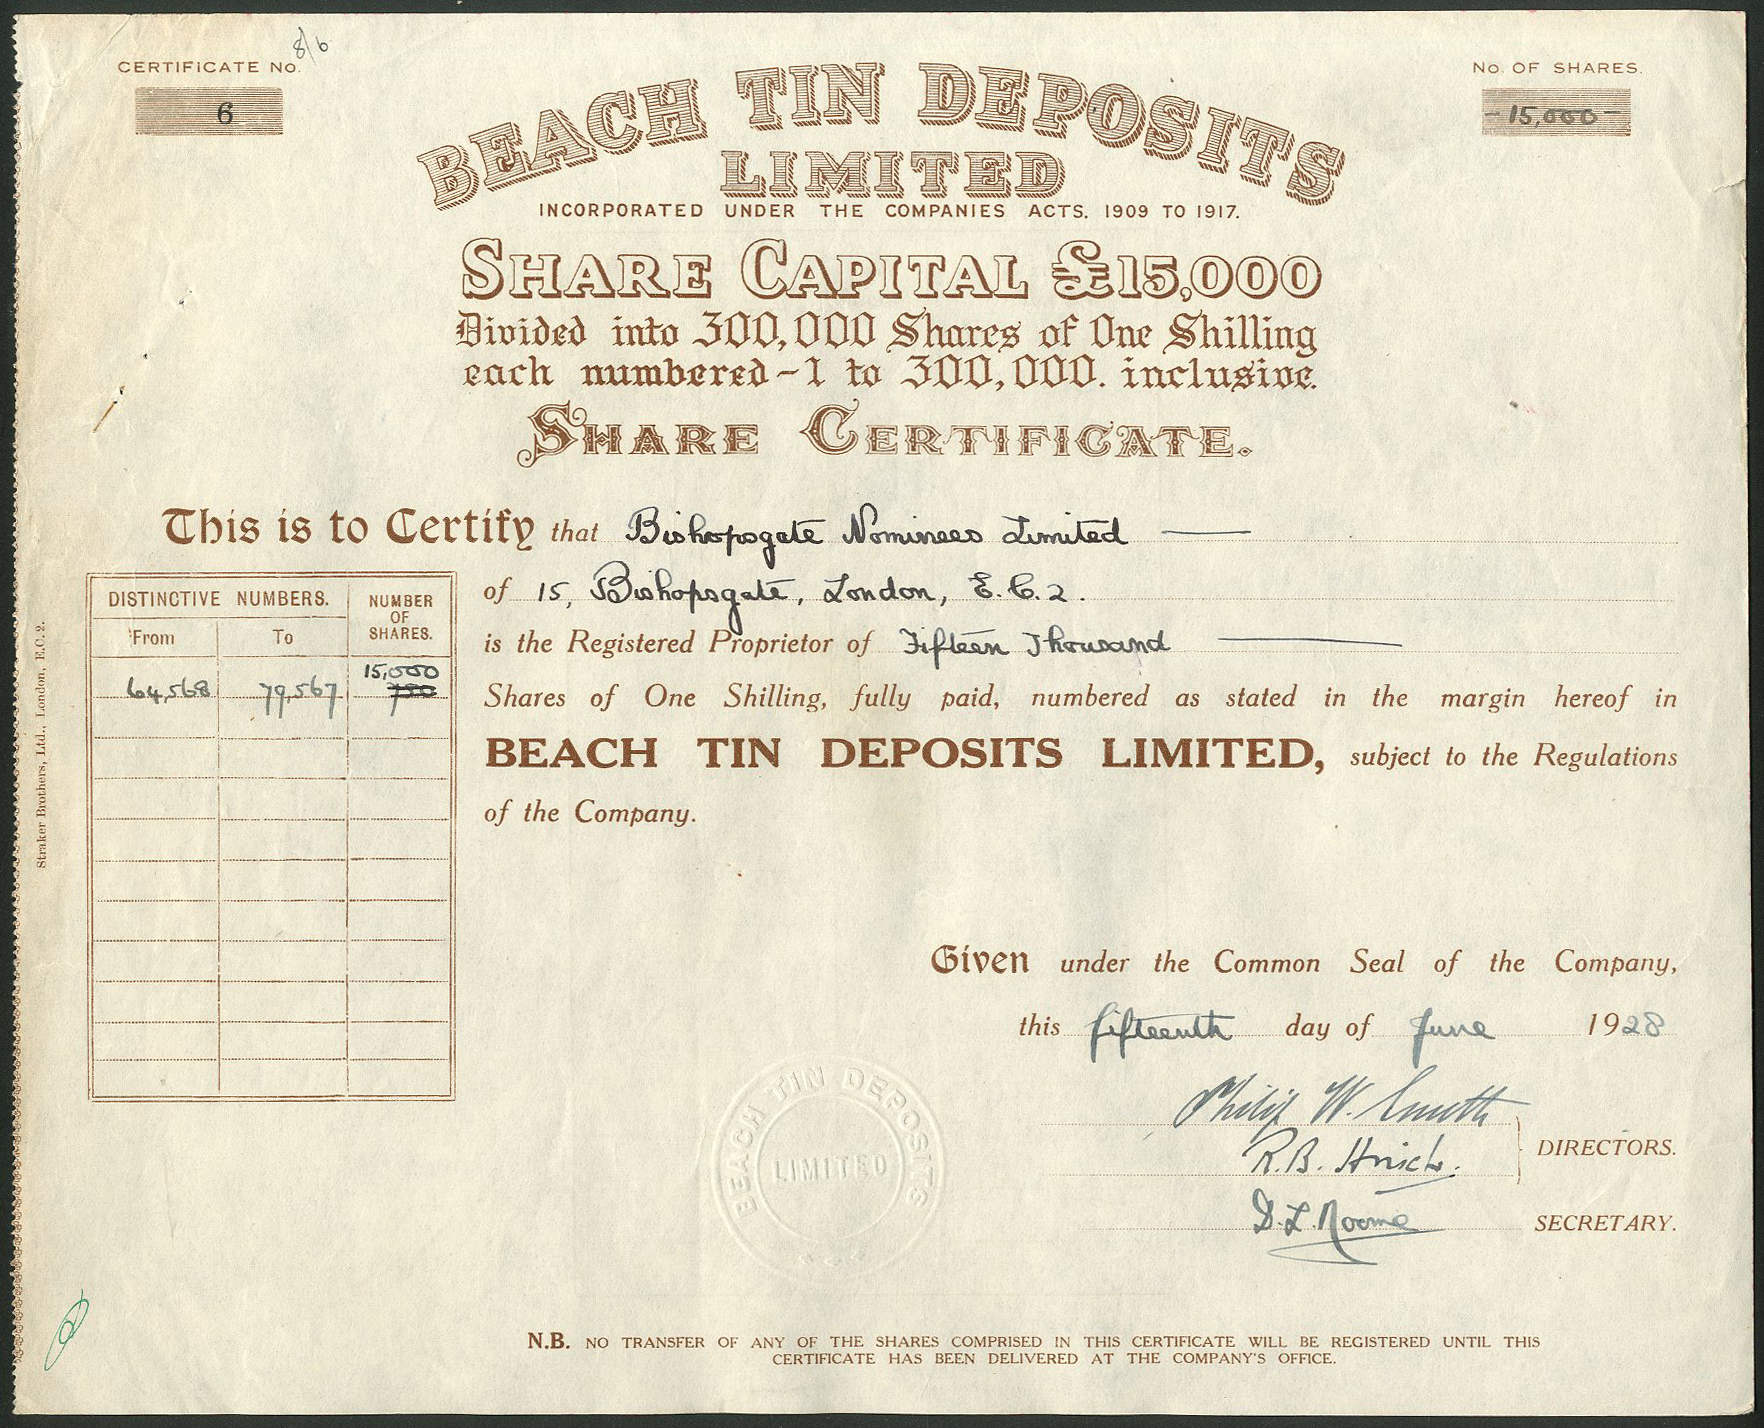 CERTIFICATE No.
8/6
6
No. OF SHARES.
- 15,000 -
BEACH TIN DEPOSITS
LIMITED
INCORPORATED UNDER THE COMPANIES ACTS. 1909 TO 1917.
SHARE CAPITAL £15,000
Divided into 300,000 Shares of One Shilling
each numbered - 1 to 300,000. inclusive.
SHARE CERTIFICATE.
This is to Certify that Bishopsgate Nominees Limited
of 15, Bishopsgate, London, E.C.2.
is the Registered Proprietor of Fifteen Thousand
Shares of One Shilling, fully paid, numbered as stated in the margin hereof in
BEACH TIN DEPOSITS LIMITED, subject to the Regulations
of the Company.
DISTINCTIVE NUMBERS.
NUMBER
OF
SHARES.
From To
15,000
64,568 79,567 750
Straker Brothers, Ltd., London, E.C. 2.
Given under the Common Seal of the Company,
this fifteenth day of June 1928
Philip W. Smith
R.B.
DIRECTORS.
D.L. Noome SECRETARY.
BEACH TIN DEPOSITS
LIMITED
N.B. NO TRANSFER OF ANY OF THE SHARES COMPRISED IN THIS CERTIFICATE WILL BE REGISTERED UNTIL THIS
CERTIFICATE HAS BEEN DELIVERED AT THE COMPANY'S OFFICE.